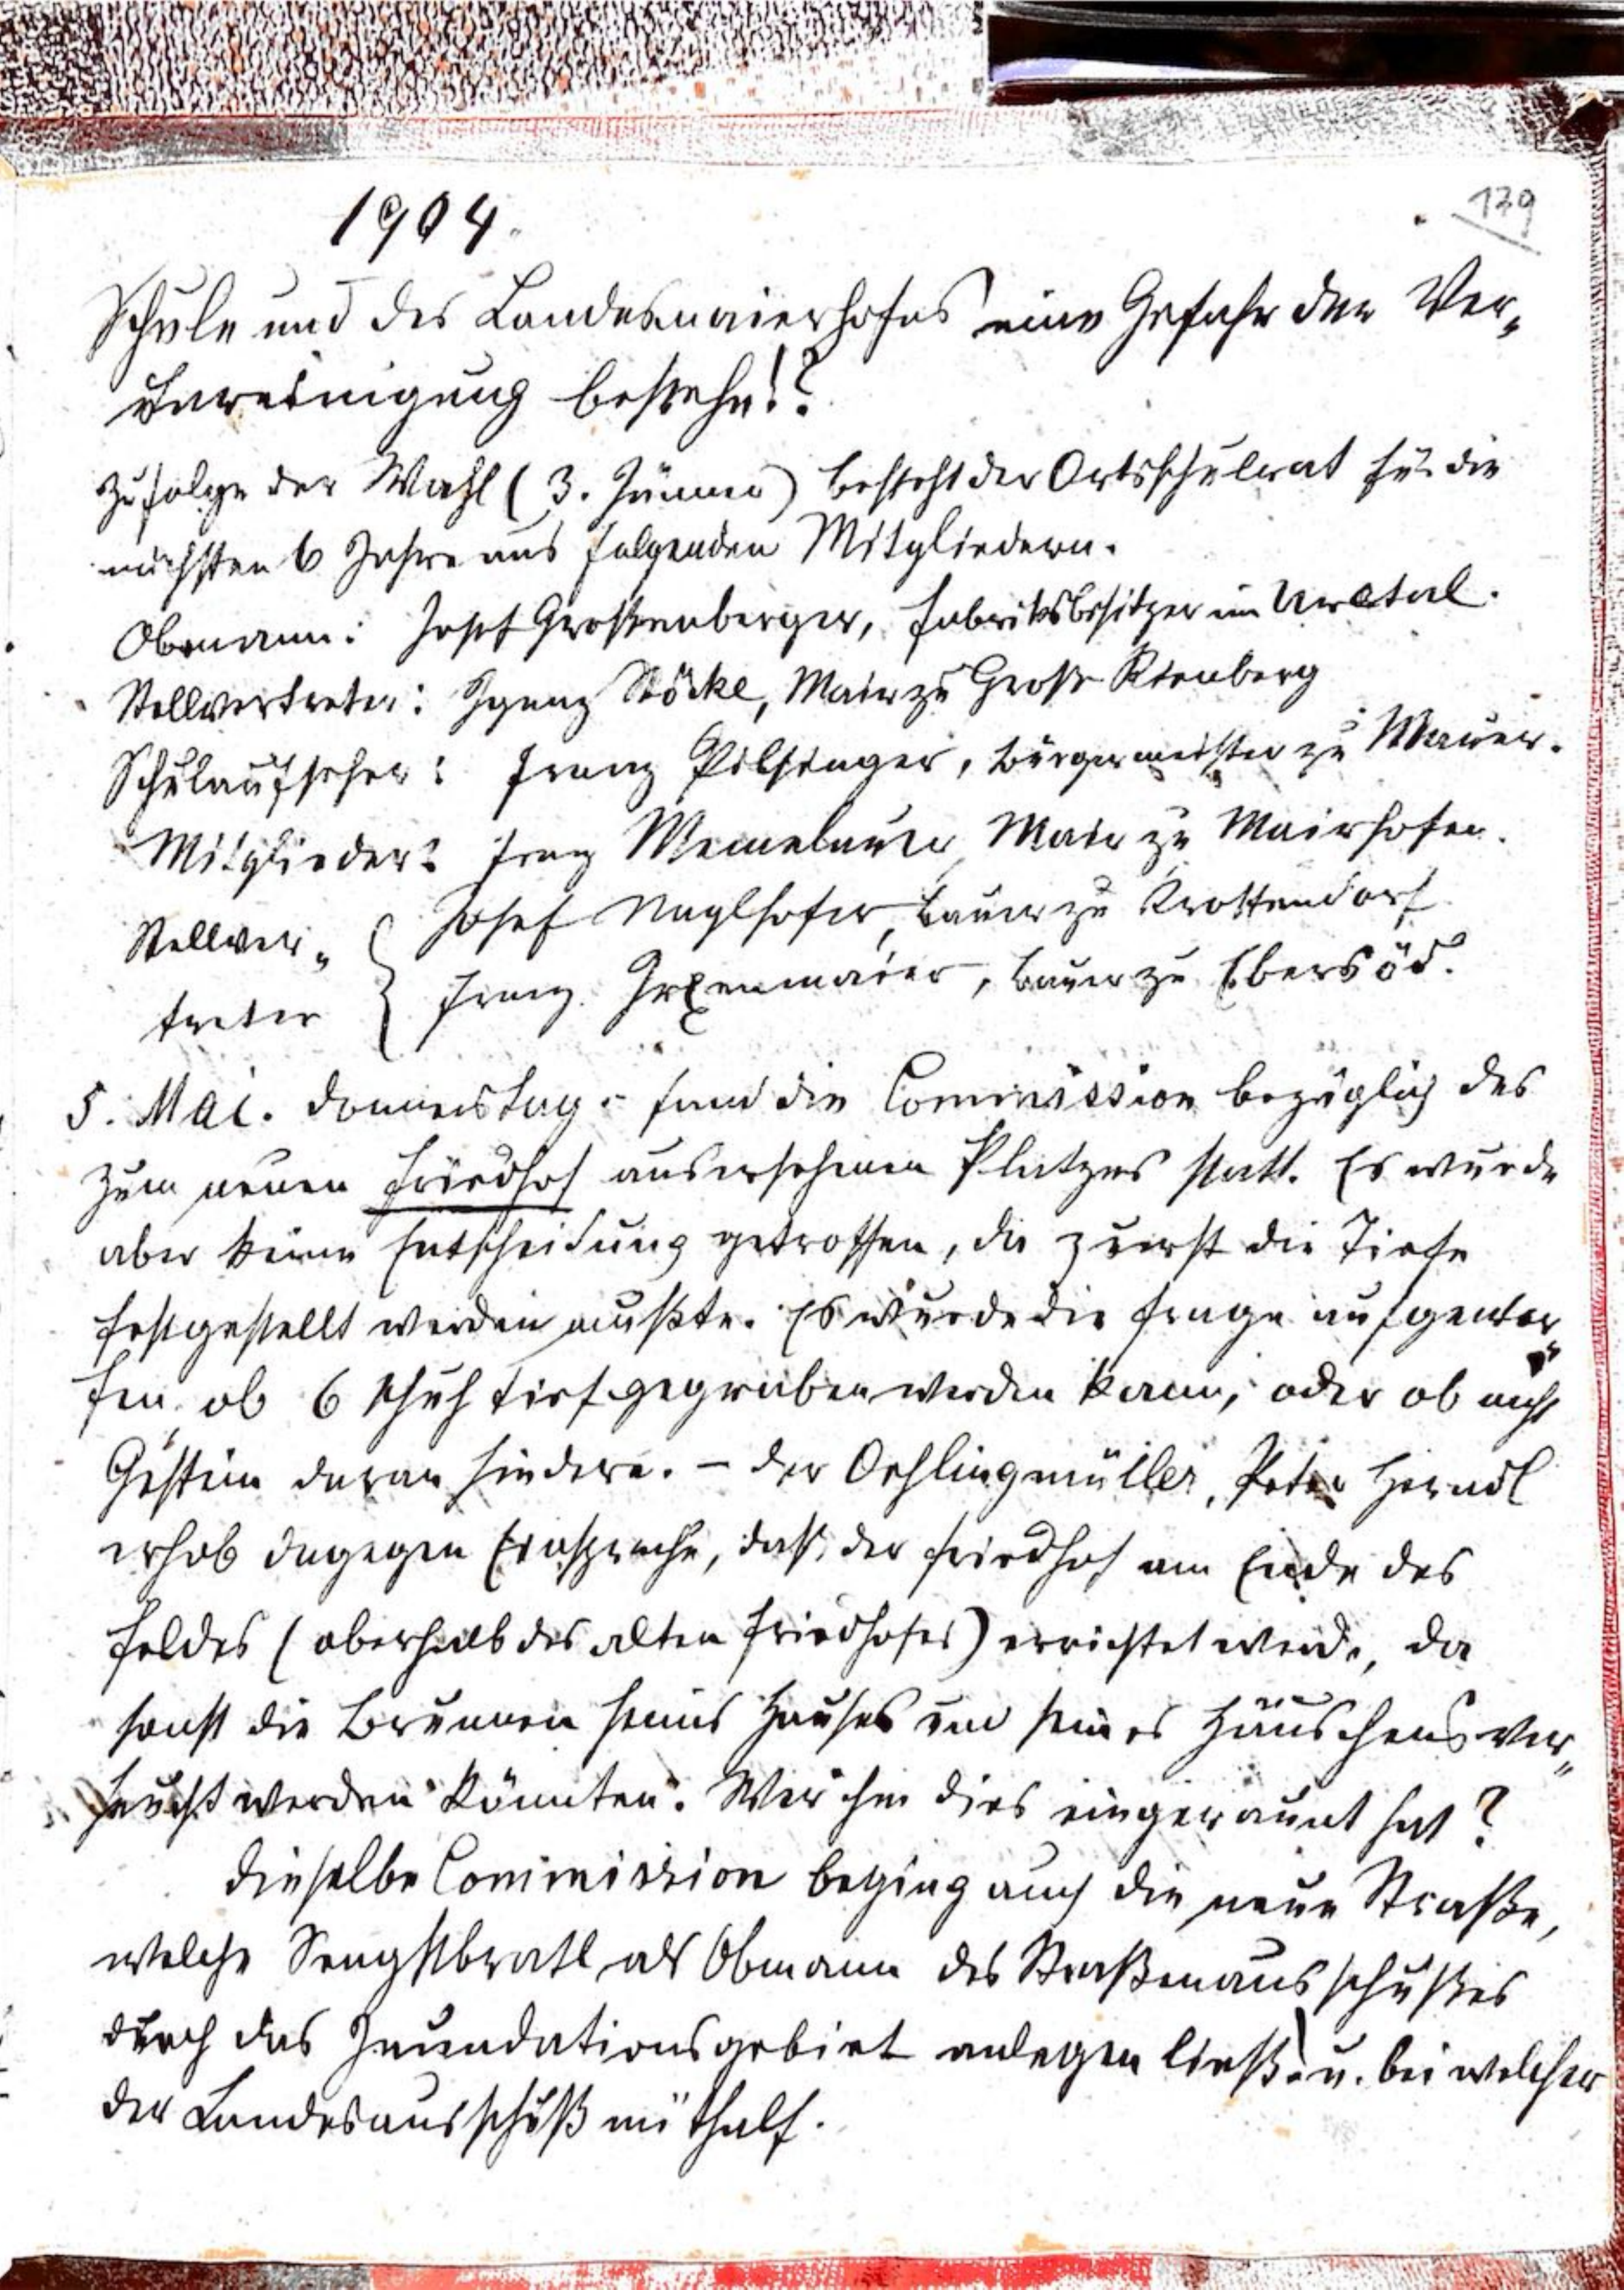 1904.
139
Schule und des Landesmaierhofes eine Gefahr der Ver„
unreinigung bestehe!?
Zufolge der Wahl (3. Jänner) besteht der Ortsschulrat für die
nächsten 6 Jahre aus folgenden Mitgliedern.
Obmann: Josef Großenberger, Fabriksbesitzer im Urltal.
Stellvertreter: Ignaz Stöckl, Mair zu Groß
Schulaufseher: Franz Pilsinger, Bürgermeister zu Mauer.
Mitglieder: Franz Mair zu Mairhofen.
Josef Naglhofer, Bauer zu Krottendorf
Stellver„
Franz Grexenmaier, Bauer zu Ebersöd.
treter
5. Mai. Donnerstag – fand die Commission bezüglich des
zum neuen Friedhof ausersehenen Platzes statt. Es wurde
aber keine Entscheidung getroffen, da zuerst die Tiefe
festgestellt werden mußte. Es wurde die Frage aufgewor„
fen, ob 6 Schuh tief gegraben werden kann, oder ob nicht
Gestein daran hindere. – Der Oehlingmüller, Peter Herndl
erhob dagegen Einsprache, daß der Friedhof am Ende des
Feldes (oberhalb des alten Friedhofes) errichtet werde, da
sonst die Brunnen seines Hauses und seines Häuschens ver„
seucht werden könnten. Wer ihm dies eingeraunt hat?
Dieselbe Commission beging auch die neue Straße,
welche Sengstbratl als Obmann des Straßenausschußes
durch das Inundationsgebiet anlegen ließ u. bei welcher
der Landesausschuß mithalf.